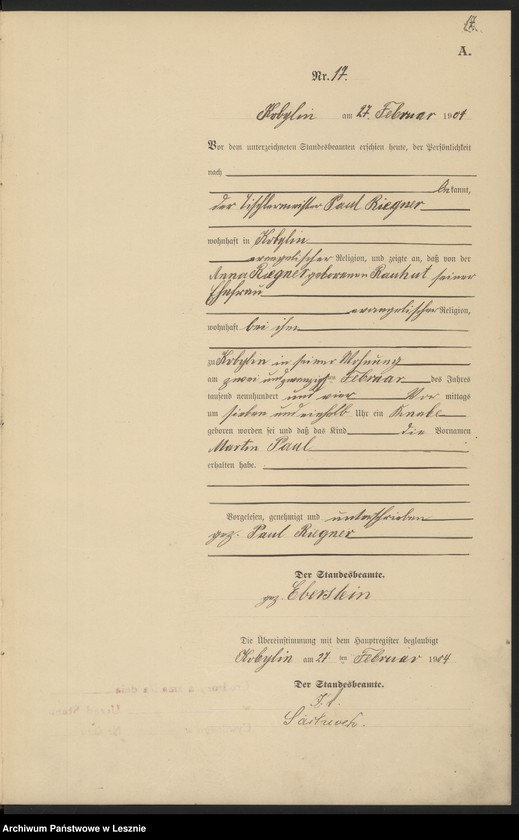 17.
A.
Nr. 17.
Kobylin am 27. Februar 1904
Vor dem unterzeichneten Standesbeamten erschien heute, der Persönlichkeit
nach
bekannt,
der Tischlermeister Paul Riegner
wohnhaft in Kobylin
evangelischer Religion, und zeigte an, daß von der
Anna Riegner geborenen Rauhut seiner
Ehefrau
evangelischer Religion,
wohnhaft bei ihm
zu Kobylin in seiner Wohnung
am zwei und zwanzigsten Februar des Jahres
tausend neunhundert und vier Vor mittags
um sieben und einhalb Uhr ein Knabe
geboren worden sei und daß das Kind die Vornamen
Martin Paul
erhalten habe.
Vorgelesen, genehmigt und unterschrieben
gez. Paul Riegner
Der Standesbeamte.
gez. Eberstein
Die Übereinstimmung mit dem Hauptregister beglaubigt
Kobylin am 27 ten Februar 1904
Der Standesbeamte.
Archiwum Państwowe w Lesznie